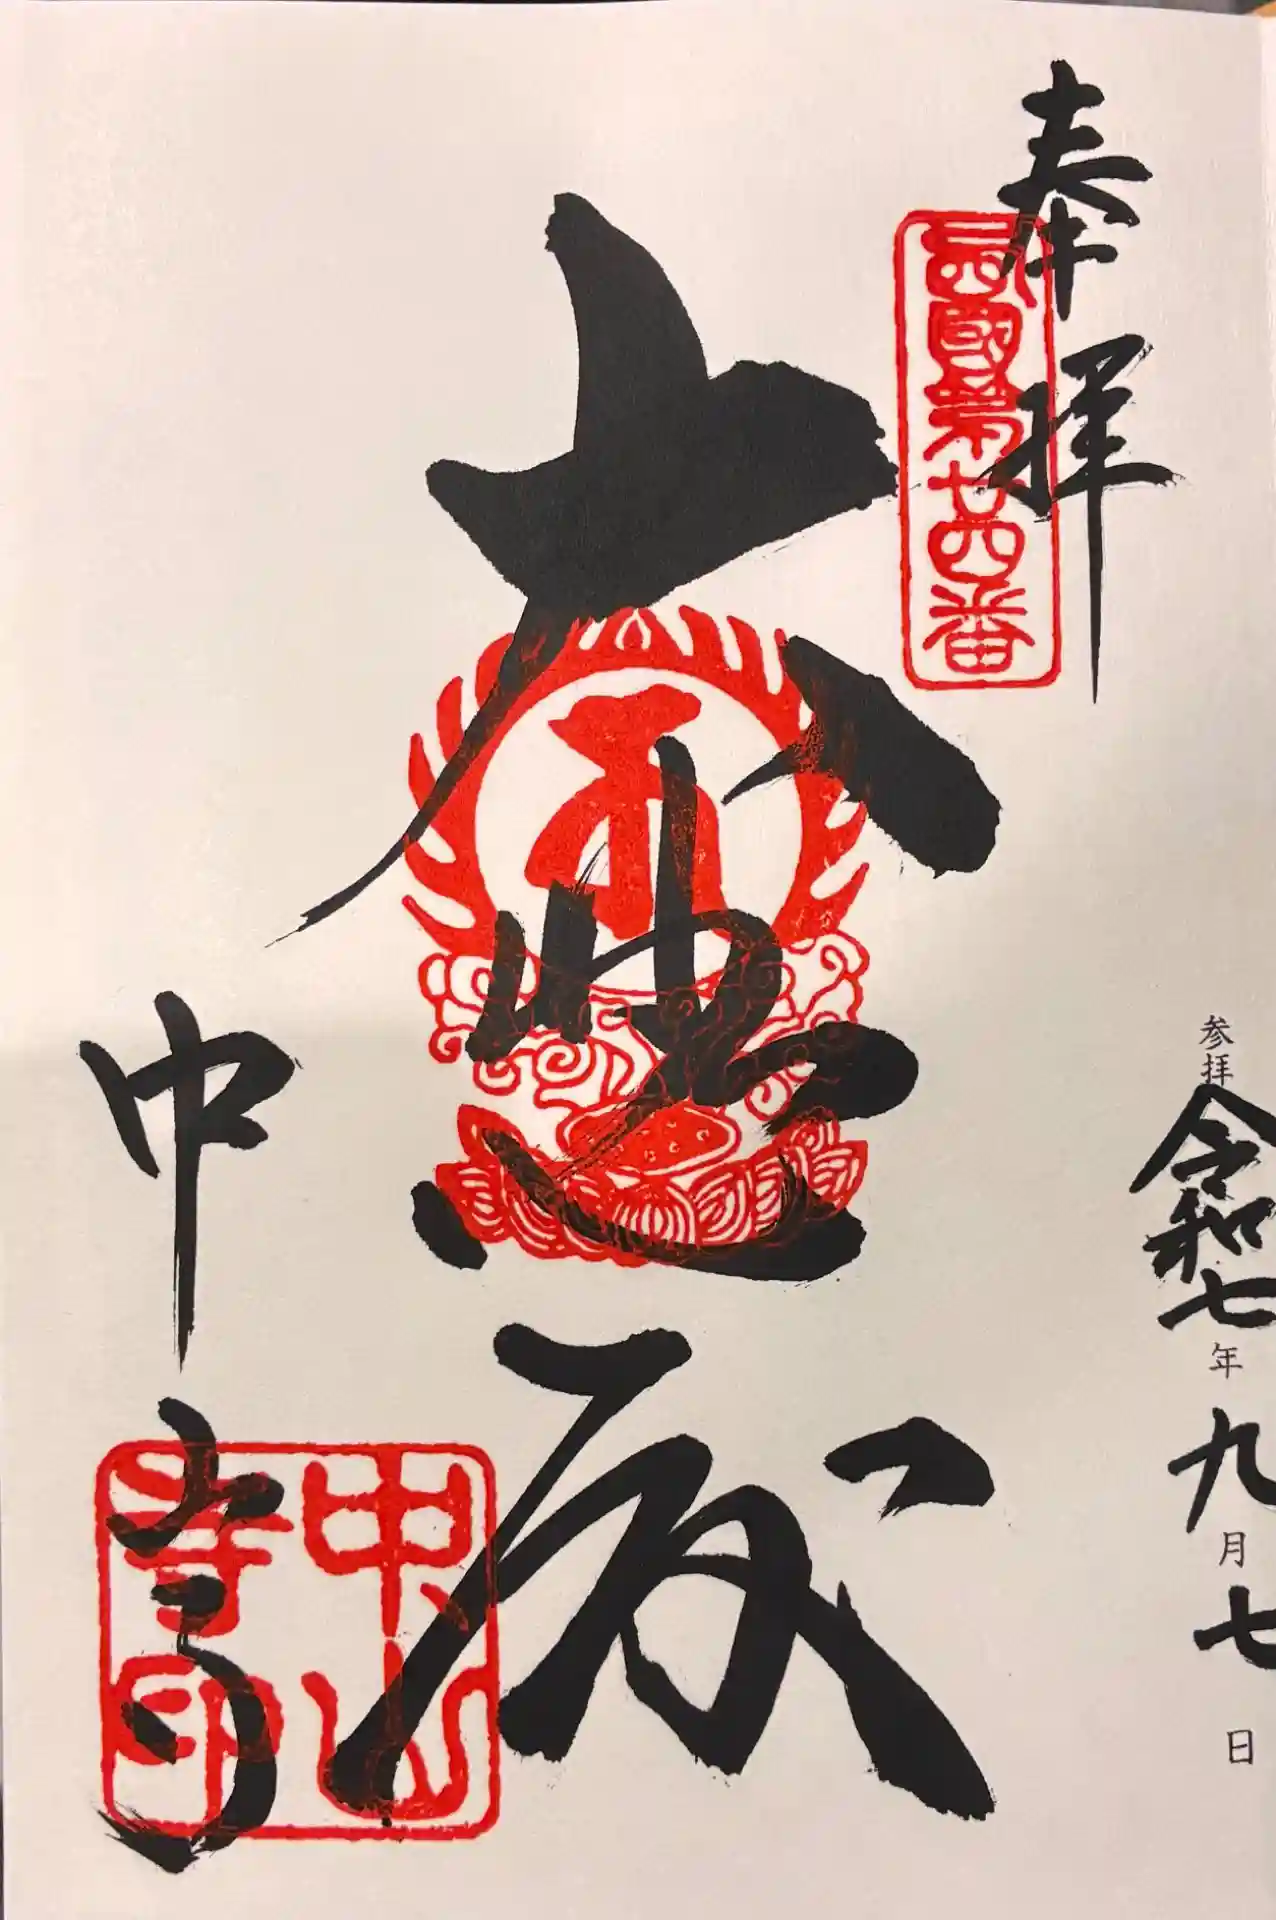 奉拝
西國第廿四番
参拝 令和七年九月七日
大悲殿
中山寺
中山寺印